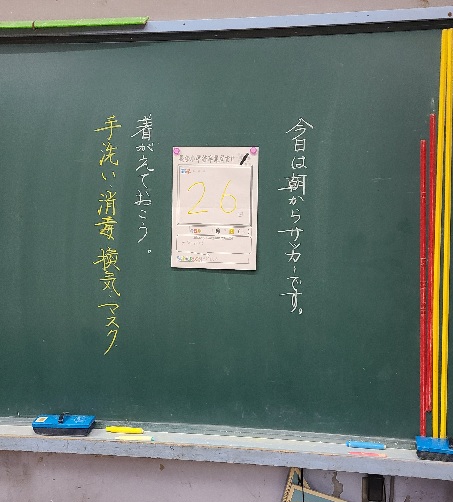 今日は朝からサッカーです。
26
着がえておこう。
手洗い 消毒 換気 マスク